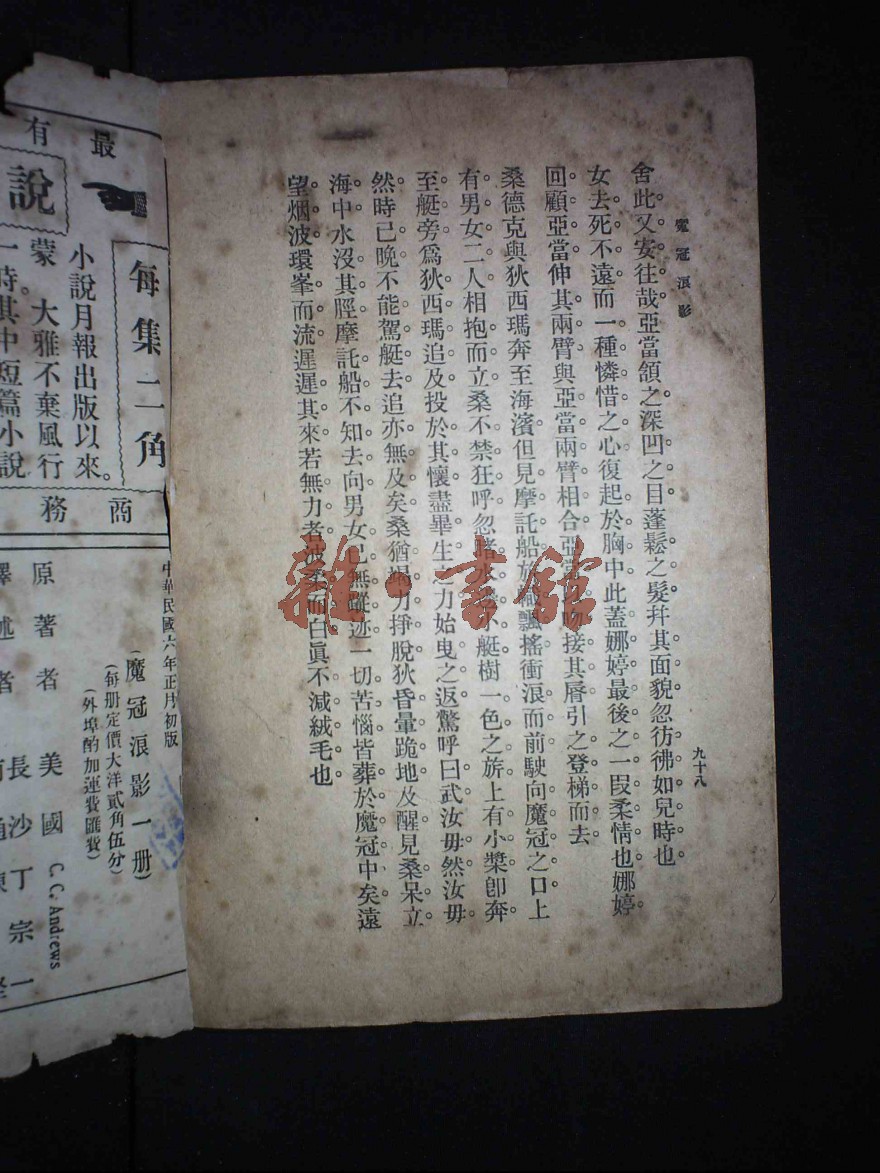 魔冠浪影
九十八
舍此又安往哉。亞當頷之。深凹之目。蓬鬆之髮。幷其面貌。忽彷彿如兒時也。
女去死不遠。而一種憐惜之心。復起於胸中。此蓋娜婷最後之一段柔情也。娜婷
回顧亞當。伸其兩臂。與亞當兩臂相合。亞當以吻接其脣。引之登梯而去。
桑德克與狄西瑪奔至海濱。但見摩托船飄搖衝浪而前。駛向魔冠之口。上
有男女二人。相抱而立。桑不禁狂呼。忽睹水小艇樹一色之旂。上有小槳。卽奔
至艇旁。爲狄西瑪追及。投於其懷。盡畢生之力。始曳之返。驚呼曰。武汝毋然。汝毋
然。時已晚。不能駕艇去。追亦無及矣。桑猶竭力掙脫。狄昏暈跪地。及醒。見桑呆立
海中。水沒其脛。摩託船不知去向。男女已無蹤迹。一切苦惱。皆葬於魔冠中矣。遠
望烟波。環峯而流。遲遲其來。若無力者。波柔而白。眞不減絨毛也。
雜·書館
最
有
說
每集二角
小說月報出版以來。
蒙大雅不棄風行
一時。其中短篇小說
商務
中華民國六年正月初版
(魔冠浪影一册)
(每册定價大洋貳角伍分)
(外埠酌加運費匯費)
原著者 美國 C. C. Andrews
譯述者 長沙丁宗一